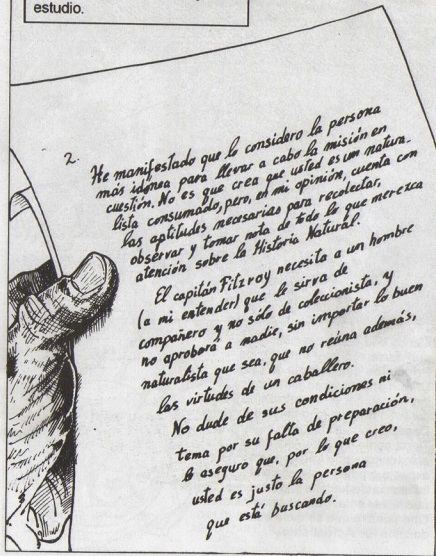 estudio.
2.
He manifestado que le considero la persona
más idónea para llevar a cabo la misión en
cuestión. No es que crea que usted es un natura-
lista consumado, pero, en mi opinión, cuenta con
las aptitudes necesarias para recolectar,
observar y tomar nota de todo lo que merezca
atención sobre la Historia Natural.
El capitán Fitzroy necesita a un hombre
(a mi entender) que le sirva de
compañero y no sólo de coleccionista, y
no aprobará a nadie, sin importar lo buen
naturalista que sea, que no reúna además,
las virtudes de un caballero.
No dude de sus condiciones ni
tema por su falta de preparación,
le aseguro que, por lo que creo,
usted es justo la persona
que está buscando.